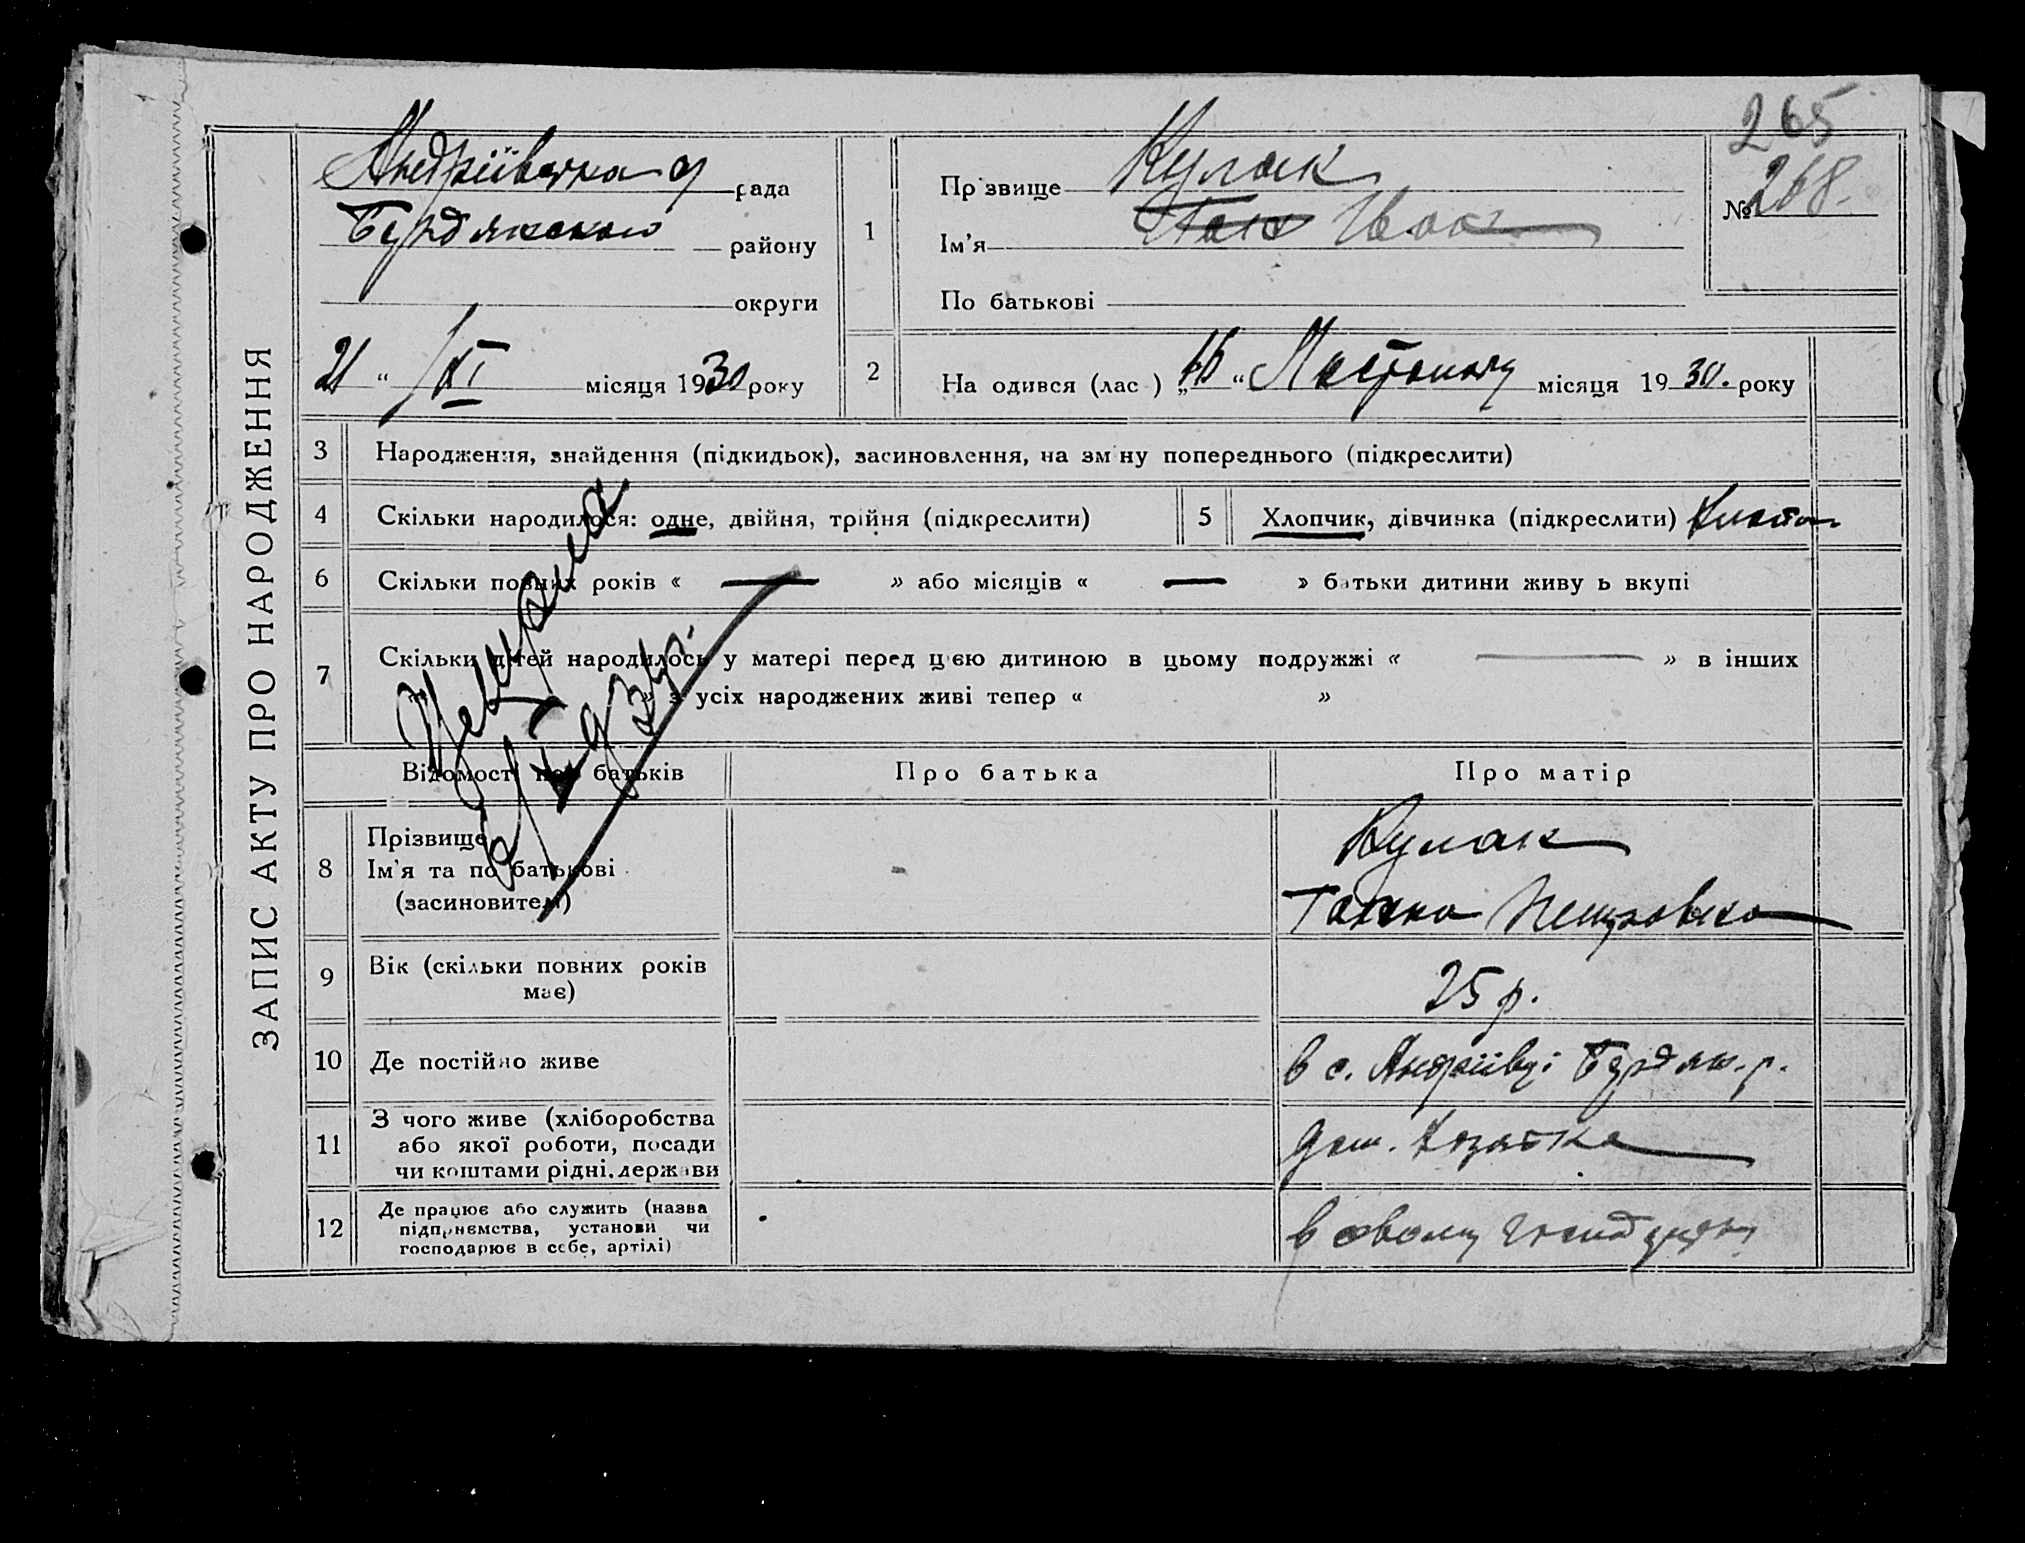 265
Андріївська
рада
Бердянського району
округи
ЗАПИС АКТУ ПРО НАРОДЖЕННЯ
21 “ /XI місяця 1930 року
1 Прізвище Кулак
Ім’я Іван
По батькові
№ 268.
2 На одився (лас ) „ “ Листопаду місяця 1930. року
3 Народження, знайдення (підкидьок), засиновлення, на зм ну попереднього (підкреслити)
4 Скільки народилося: одне, двійня, трійня (підкреслити) 5 Хлопчик, дівчинка (підкреслити)
6 Скільки повних років « — » або місяців « — » батьки дитини живу ь вкупі
7 Скільки дітей народилось у матері перед цією дитиною в цьому подружжі « — » в інших
» з усіх народжених живі тепер « »
Відомості про батьків Про батька Про матір
8 Прізвище Кулак
Ім’я та по батькові
(засиновителі) Петровна
9 Вік (скільки повних років
має) 25 р.
10 Де постійно живе в с. Андріївці Бердян. р.
11 З чого живе (хліборобства
або якої роботи, посади
чи коштами рідні, держави дом.
12 Де працює або служить (назва
підприємства, установи чи
господарює в себе, артілі) в своему